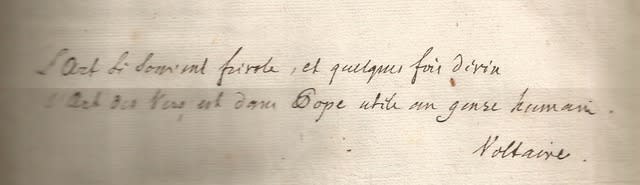 L'Art si souvent frivole, et quelques fois divin
L'Art des Vers, est dans Pope utile au genre humain.
Voltaire.